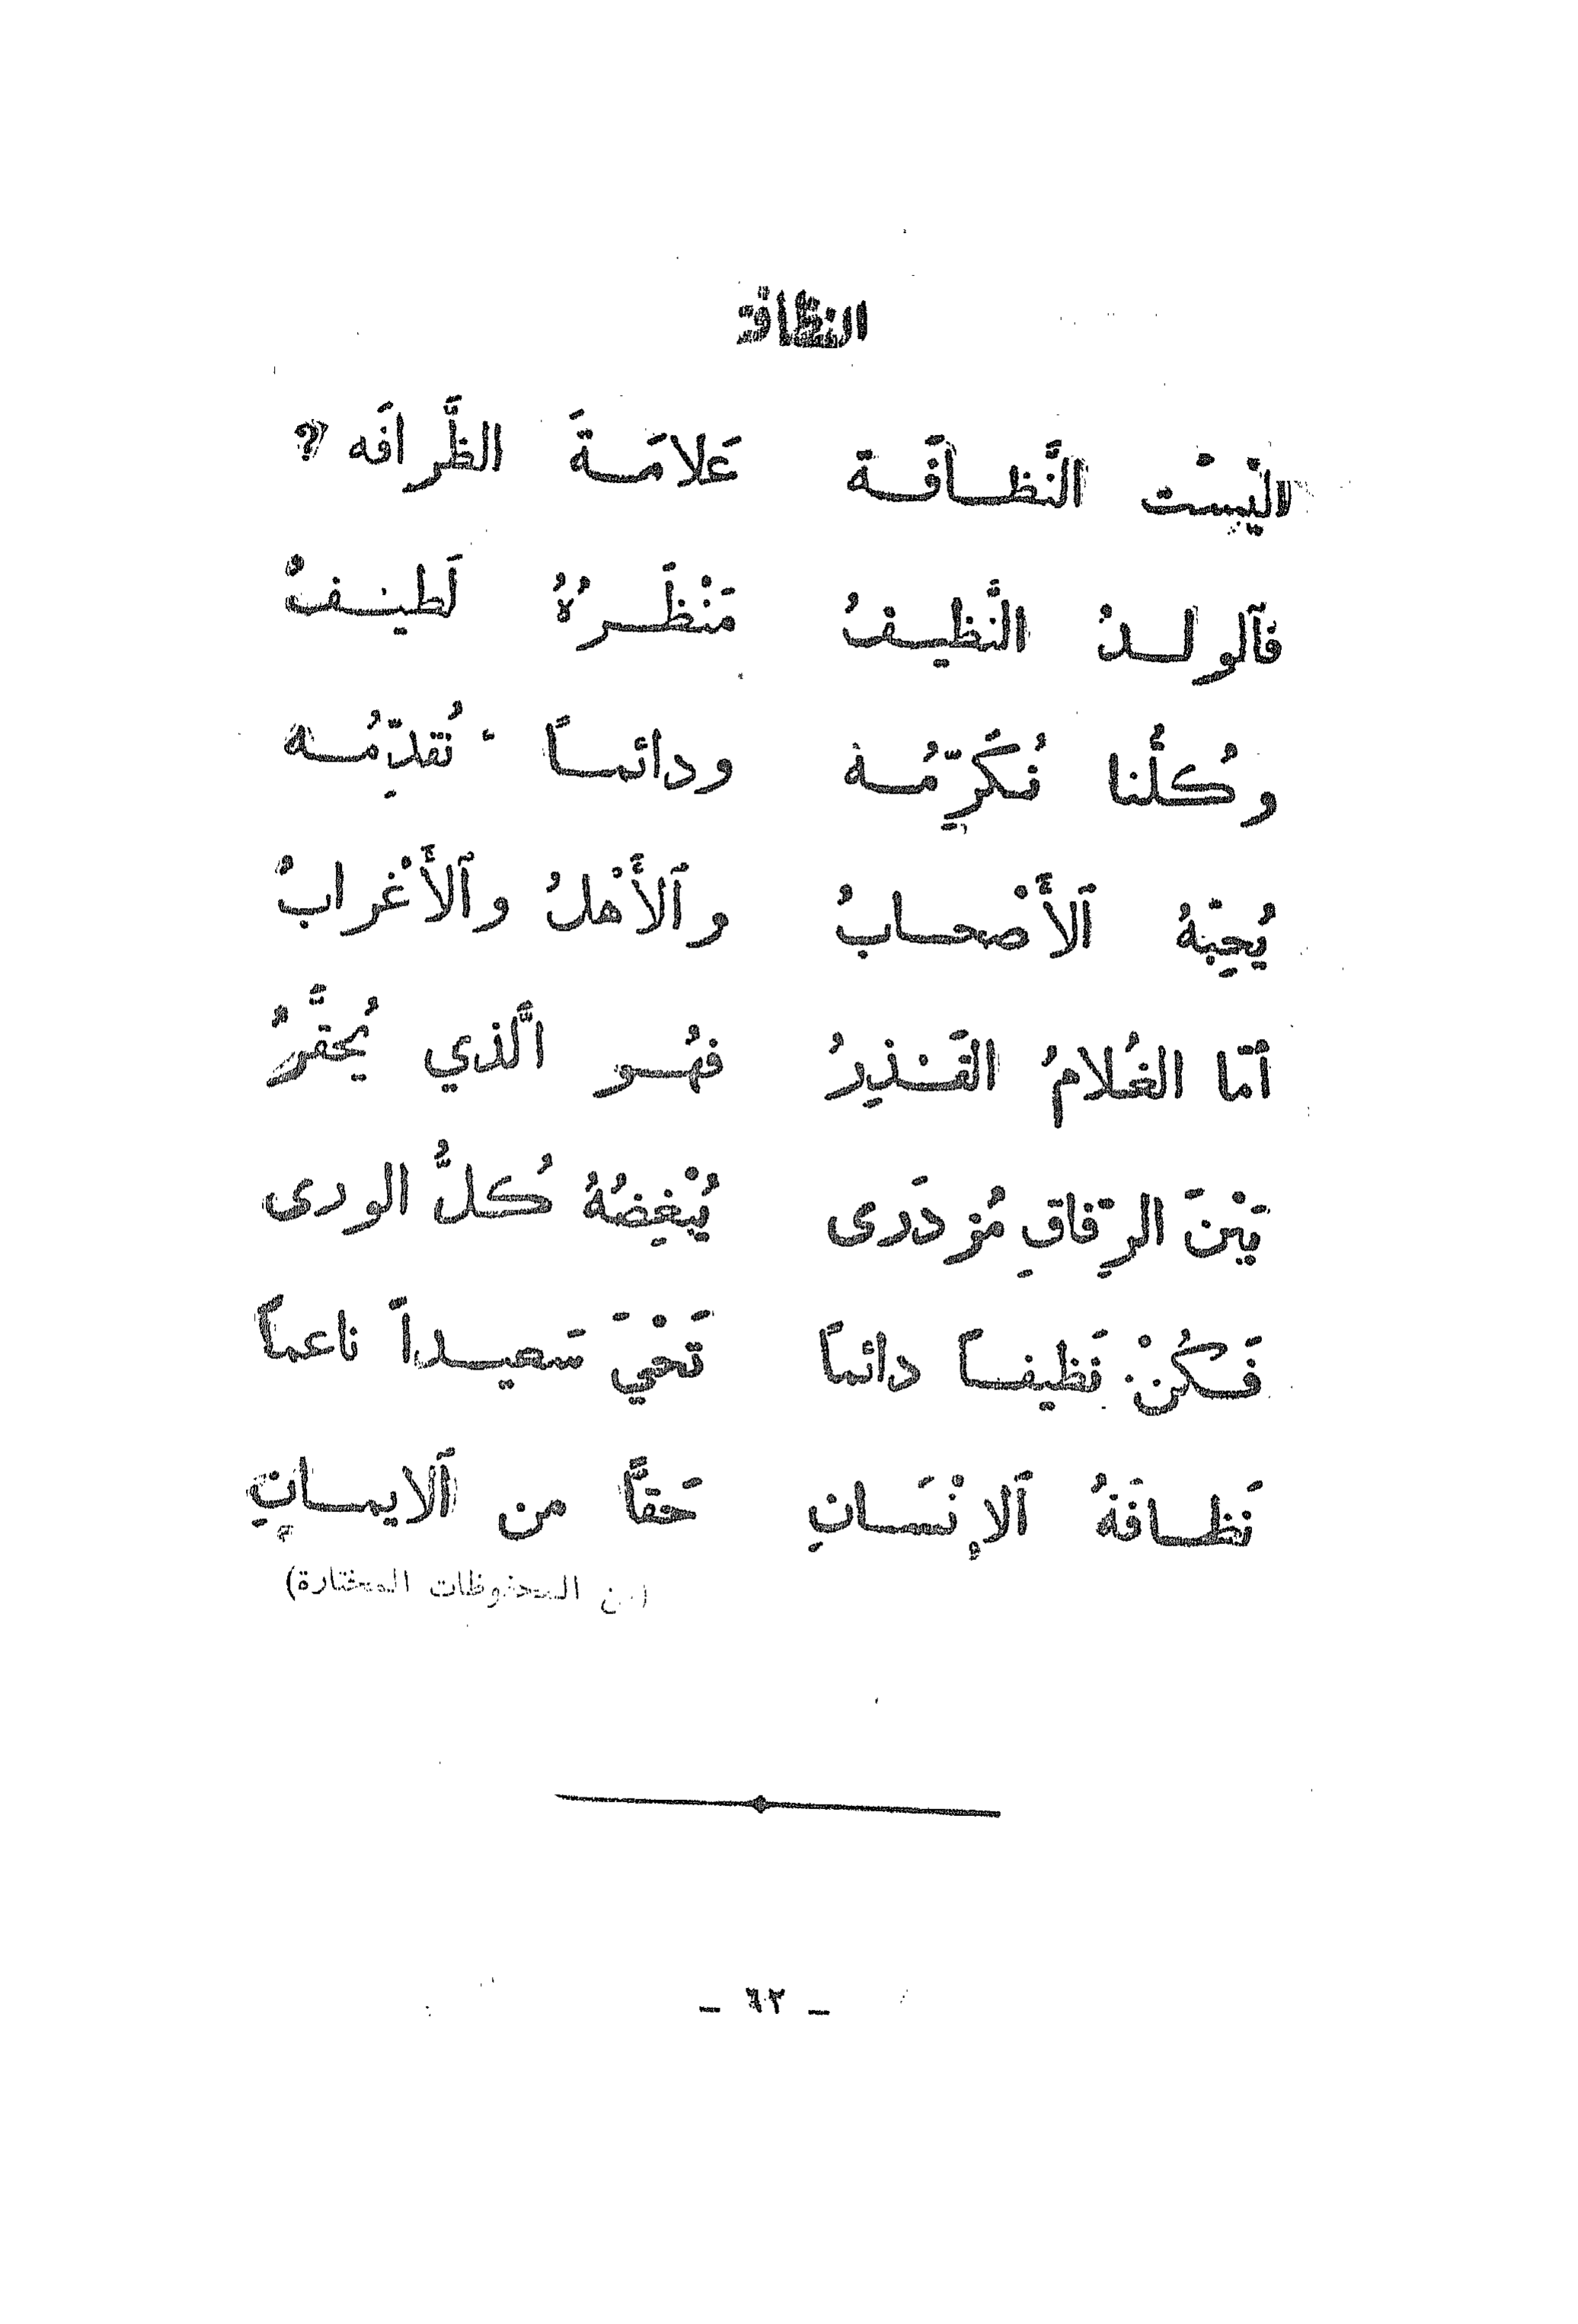 النظافة
أليْسَتْ النَّظـافَـة عَلامَـةَ الظَّرافَه ?
فآلولـدُ النَّظيـفُ مَنْظَـرُهُ لَطيـفُ
وكُلُّنا نُكَرِّمُـهْ ودائمـاً نُقدِّمُـه
يُحِبّهُ ٱلأَصْحـابُ وٱلأَهْلُ وٱلأَغْرابُ
أمّا الغُلامُ القَـذِرُ فهُـو الَّذي يُحقَّرُ
بَيْنَ الرِّفاقِ مُزدَرى يُبْغِضُهُ كُلُّ الورى
فَـكُنْ نَظيفـاً دائماً تَحْيَ سَعيـداً ناعماً
نَظـافَةُ ٱلإنْسَـانِ حَقاً من ٱلايمـانِ
(من المحفوظات المختارة)
– ٦٢ –